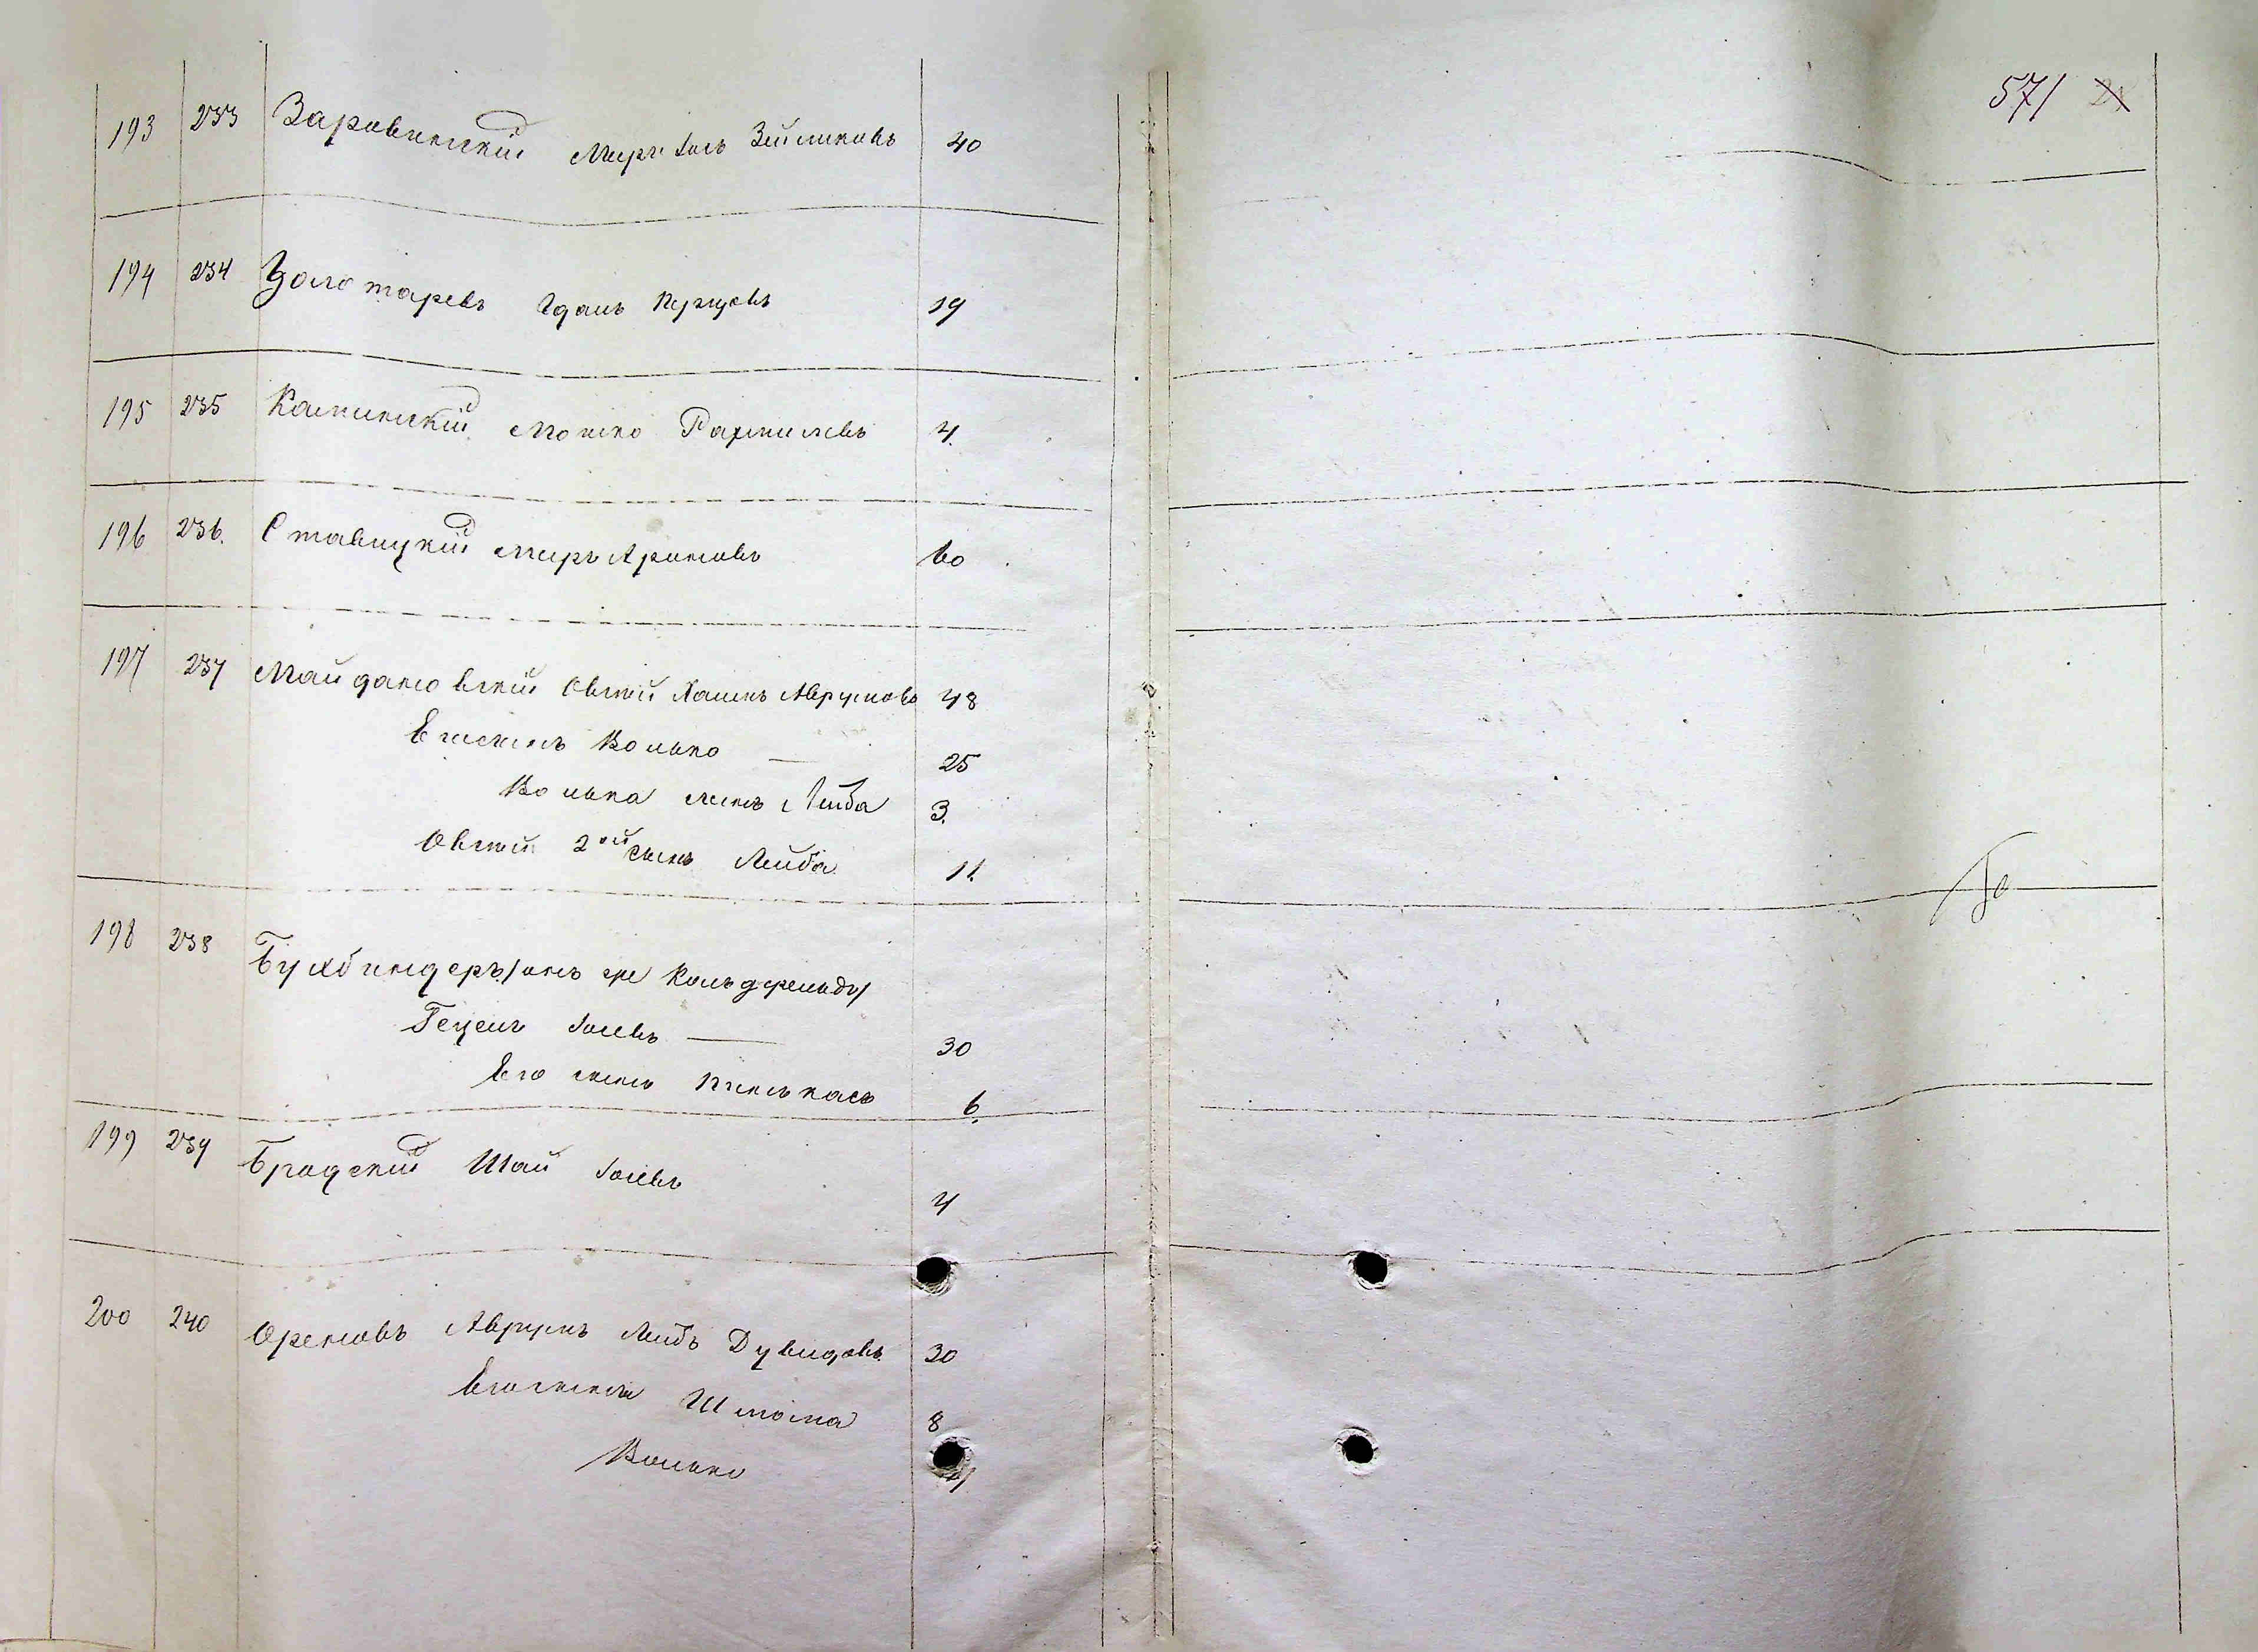 571
193 233 Заравинскій Меръ Іось Зейликовъ 40
194 234 Золотаревъ Иданъ Пурицовъ 19
195 235 Каминскій Мошко Рахмилевъ 4.
196 236. Ставицкій Меръ Ароновъ 60
197 237 Майдановскій Овсей Хаимъ Аврумовъ 48
Его сынъ Волько — 25
Волька сынъ Лейба 3.
Овсей 2ой сынъ Лейба 11.
198 238 Бухбиндеръ /онъ же Гольдфельдъ/
Гецель Іосевъ — 30
Его сынъ Пинькась 6.
199 239 Бродскій Шай Іосевъ 4
200 240 Ореновъ Аврумъ Лейбъ Дувидовъ 30
Его сыновья Шлома 8
Волько